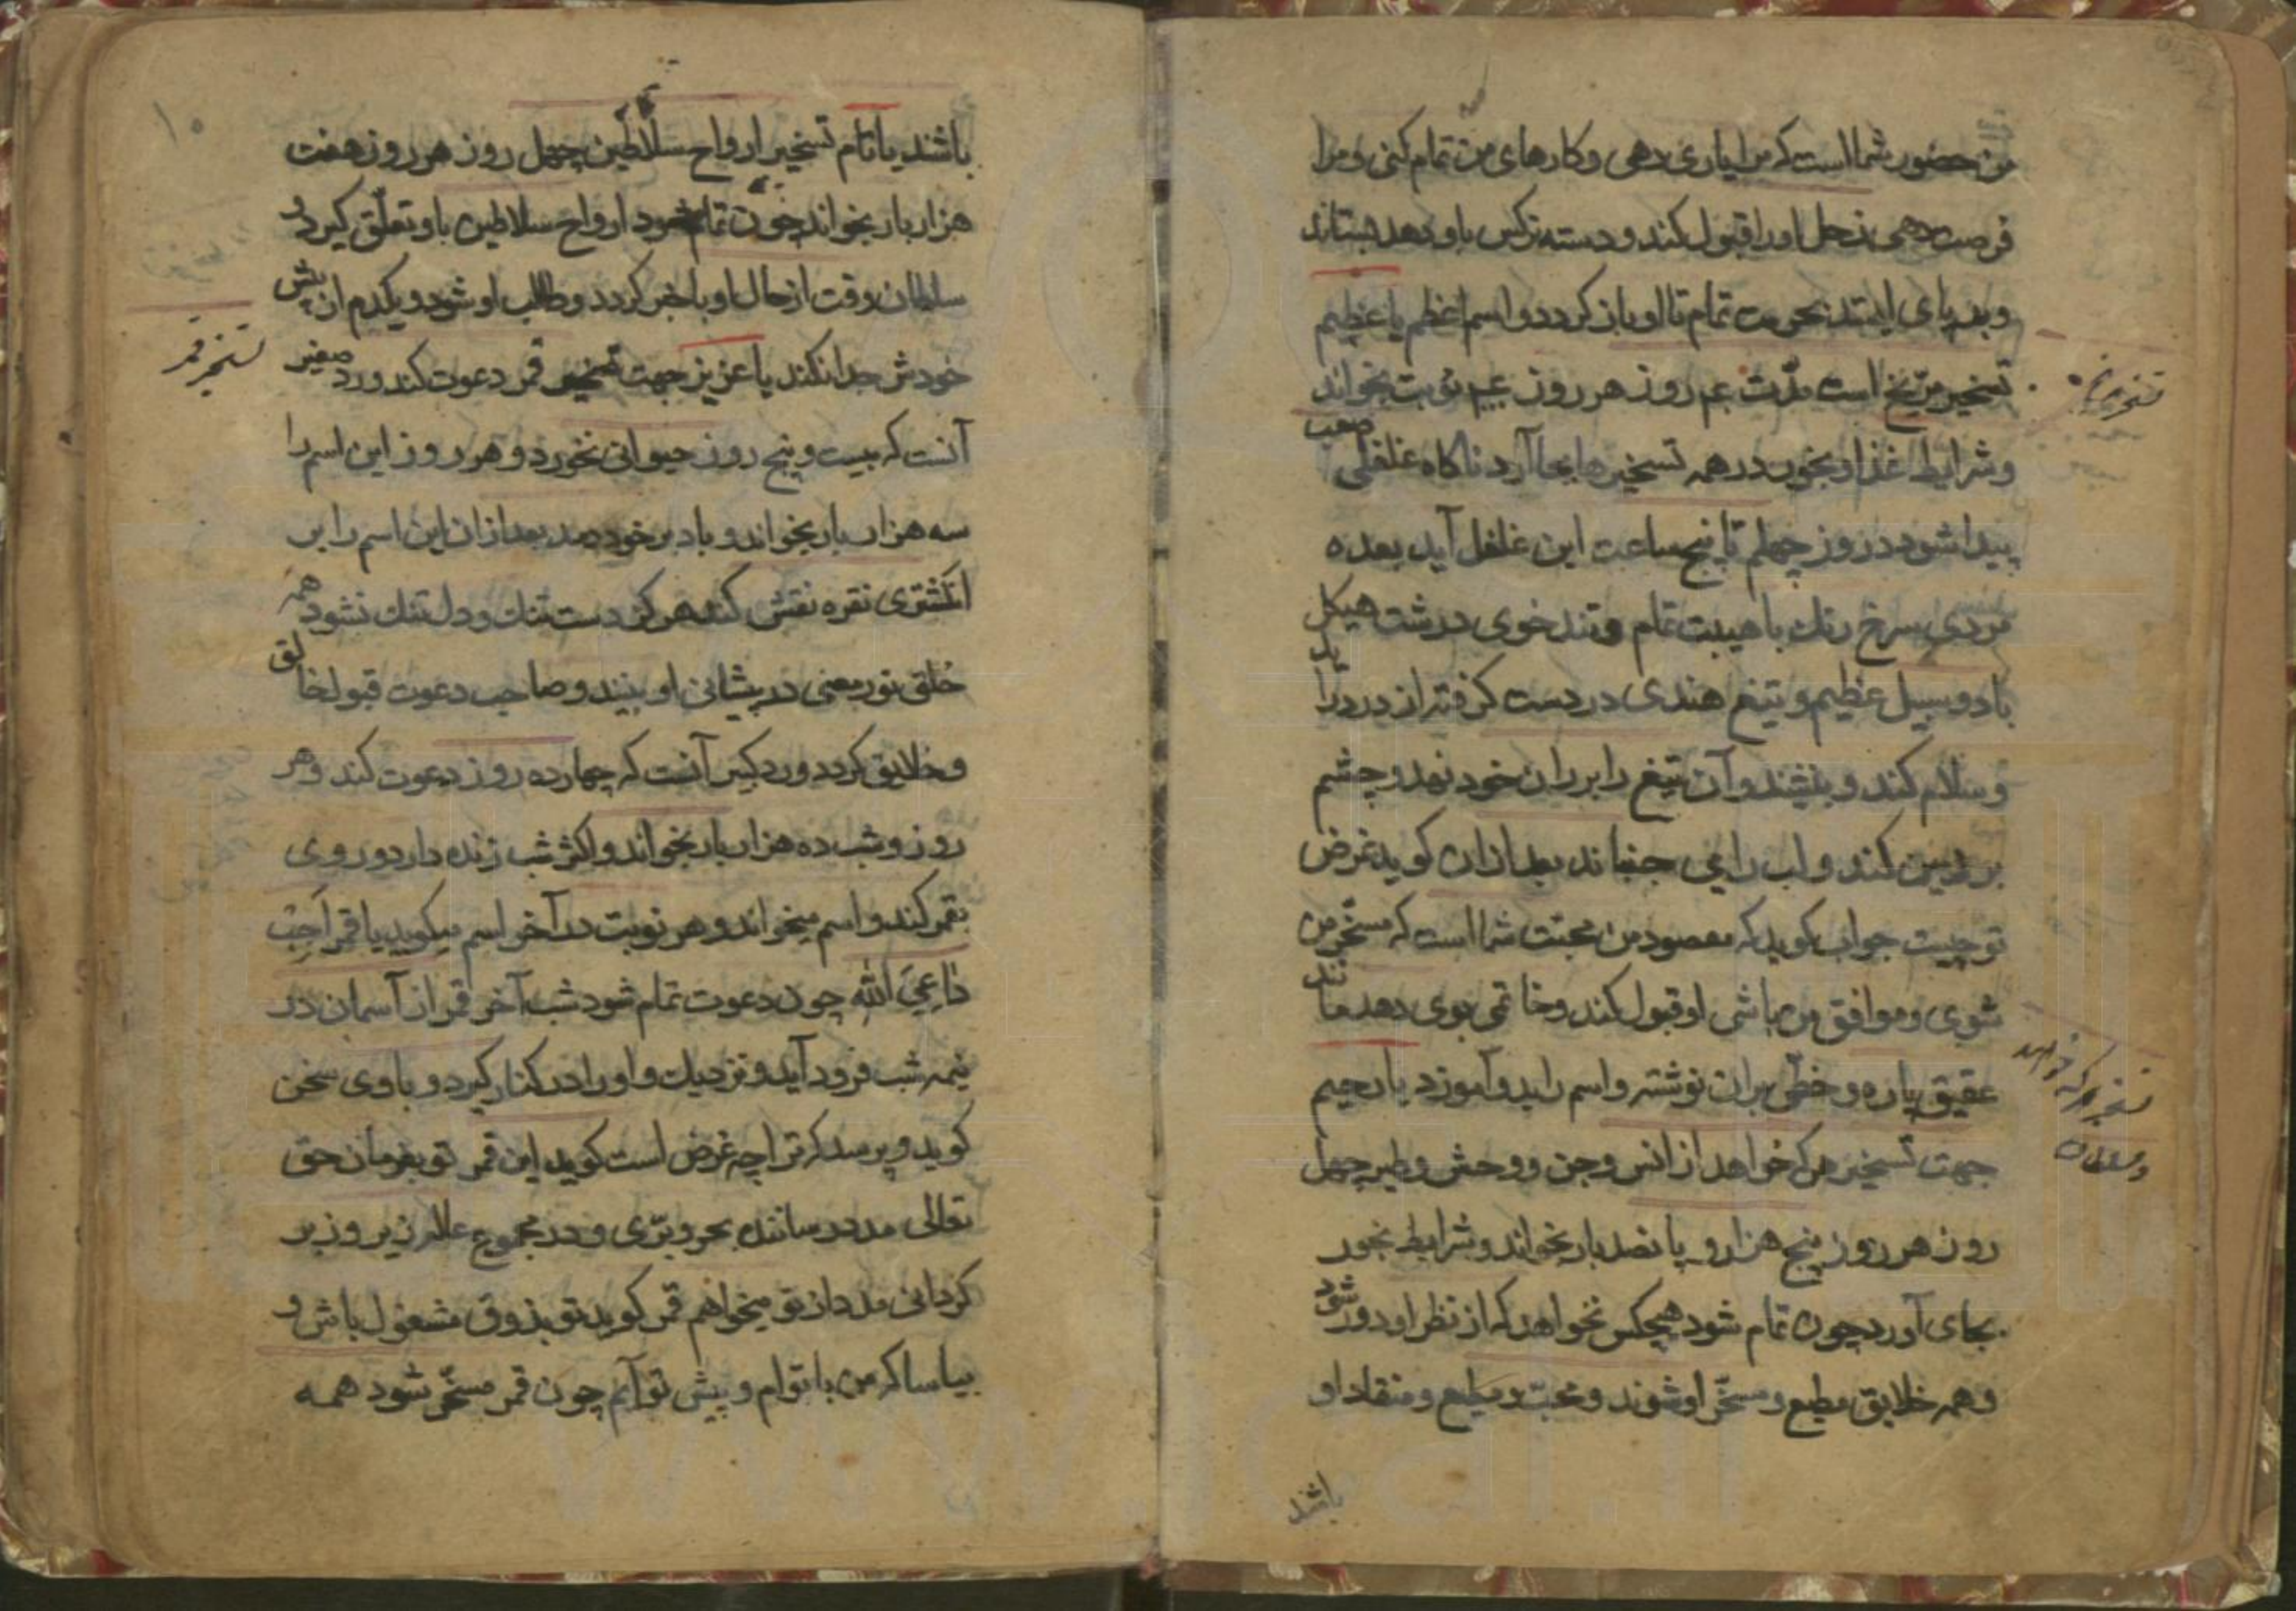 من حضور شما است که مرا یاری دهی و کارهای من تمام کنی و مرا
فرصت دهی زحل اورا قبول کند و دسته نرکس باو دهد بستاند
و بر پای ایستد بحرمت تمام تا او باز کردد و اسم اعظم یا عظیم
تسخیر مریخ است مدّت روز هر روز نوبت بخواند
تسخیر مریخ
و شرایط غذا و بخور در همه تسخیرها بجا آرد ناکاه غلغلی صعب
پیدا شود در روز چهلم تا پنج ساعت این غلغل آید بعده
مردی سرخ رنك با هیبت تمام و تند خوی درشت هیکل
با دو سبیل عظیم و تیغ هندی در دست کرفته از در درآید
و سلام کند و بنشیند و آن تیغ را بر ران خود نهد و چشم
بر زمین کند و لب را می جنباند بعد ازان کوید غرض
تو چیست جواب کوید که مقصود من محبّت شما است که مسخّر من
شوی و موافق من باشی او قبول کند و خاتمی بوی دهد مانند
عقیق پاره و خطّی بران نوشته و اسم را بدو آموزد یا رحیم
تسخیر هرکه خواهد
و سلطان
جهت تسخیر هرکه خواهد از انس و جن و وحش و طیر چهل
روز هر روز پنج هزار و پانصد بار بخواند و شرایط بخور
بجای آورد چون تمام شود هیچکس نخواهد که از نظر او دور شود
و همه خلایق مطیع و مسخّر او شوند و محبّ و مطیع و منقاد او
باشند
۱۰
باشند یا تام تسخیر ارواح سلاطین چهل روز هر روز هفت
هزار بار بخواند چون تمام شود ارواح سلاطین باو تعلّق کیرد و
سلطان وقت از حال او با خبر کردد و طالب او شود و یکدم از پیش
خودش جدا نکند یا عزیز جهت تسخیر قمر دعوت کند ورد صغیر
تسخیر قمر
آنست که بیست و پنج روز حیوانی نخورد و هر روز این اسم را
سه هزار بار بخواند و باد بر خود دمد بعد ازان این اسم را بر
انکشتری نقره نقش کند هرکز دست تنك و دل تنك نشود همه
خلق نور معنی در پیشانی او بینند و صاحب دعوت قبول خالق
و خلایق کردد ورد کبیر آنست که چهارده روز دعوت کند و هر
روز و شب ده هزار بار بخواند و اکثر شب زنده دارد و روی
بقمر کند و اسم میخواند و هر نوبت در آخر اسم میکوید یا قمر اَجِبْ
داعِیَ اللّه چون دعوت تمام شود شب آخر قمر از آسمان در
نیمه شب فرود آید و نزدیك و اورا در کنار کیرد و با وی سخن
کوید و پرسد که ترا چه غرض است کوید ای قمر تو بفرمان حق
تعالی مدد رساننده بحر و برّی و در مجموع عالم زیر و زبر
کردانی مدد از تو میخواهم قمر کوید تو بذوق مشغول باش و
بیاسا که من با توام و پیش تو آیم چون قمر مسخّر شود همه